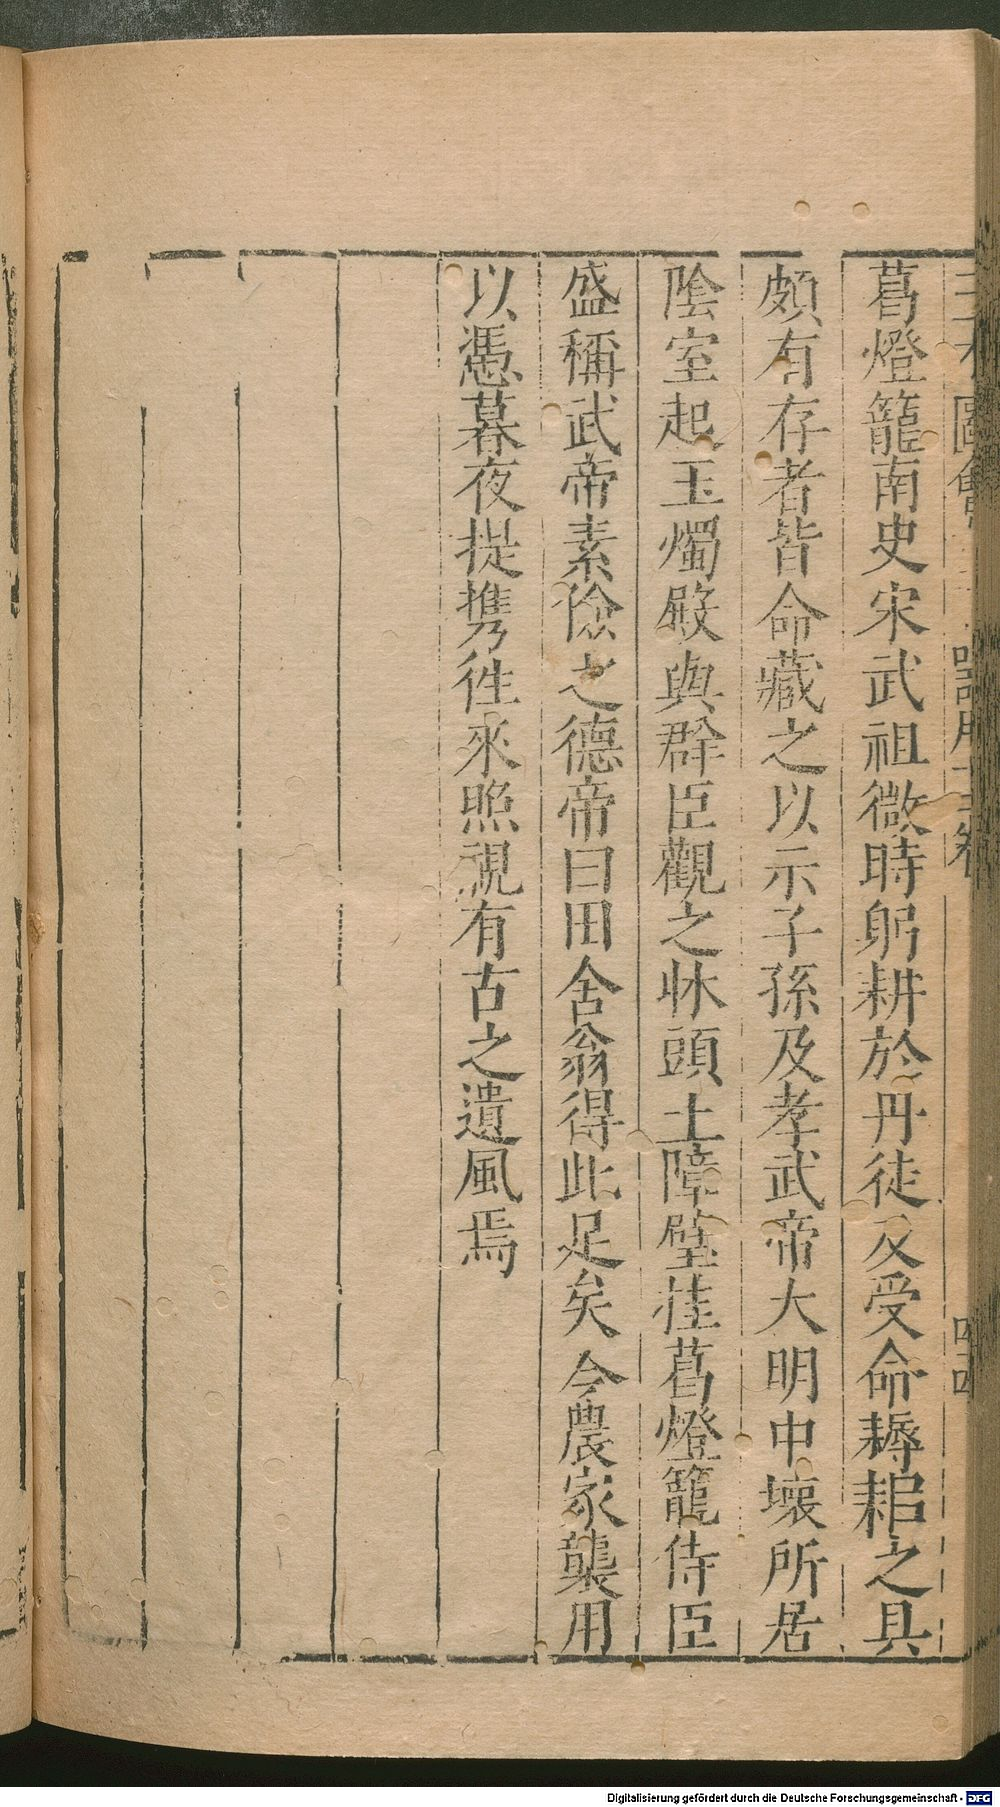 三才圖會 器用十一卷 四四
葛燈籠南史宋武祖微時躬耕於丹徒及受命耨耜之具
頗有存者皆命藏之以示子孫及孝武帝大明中壞所居
陰室起玉燭殿與群臣觀之牀頭土障壁挂葛燈籠侍臣
盛稱武帝素儉之德帝曰田舍翁得此足矣今農家襲用
以憑暮夜提攜徃來照視有古之遺風焉
Digitalisierung gefördert durch die Deutsche Forschungsgemeinschaft - DFG